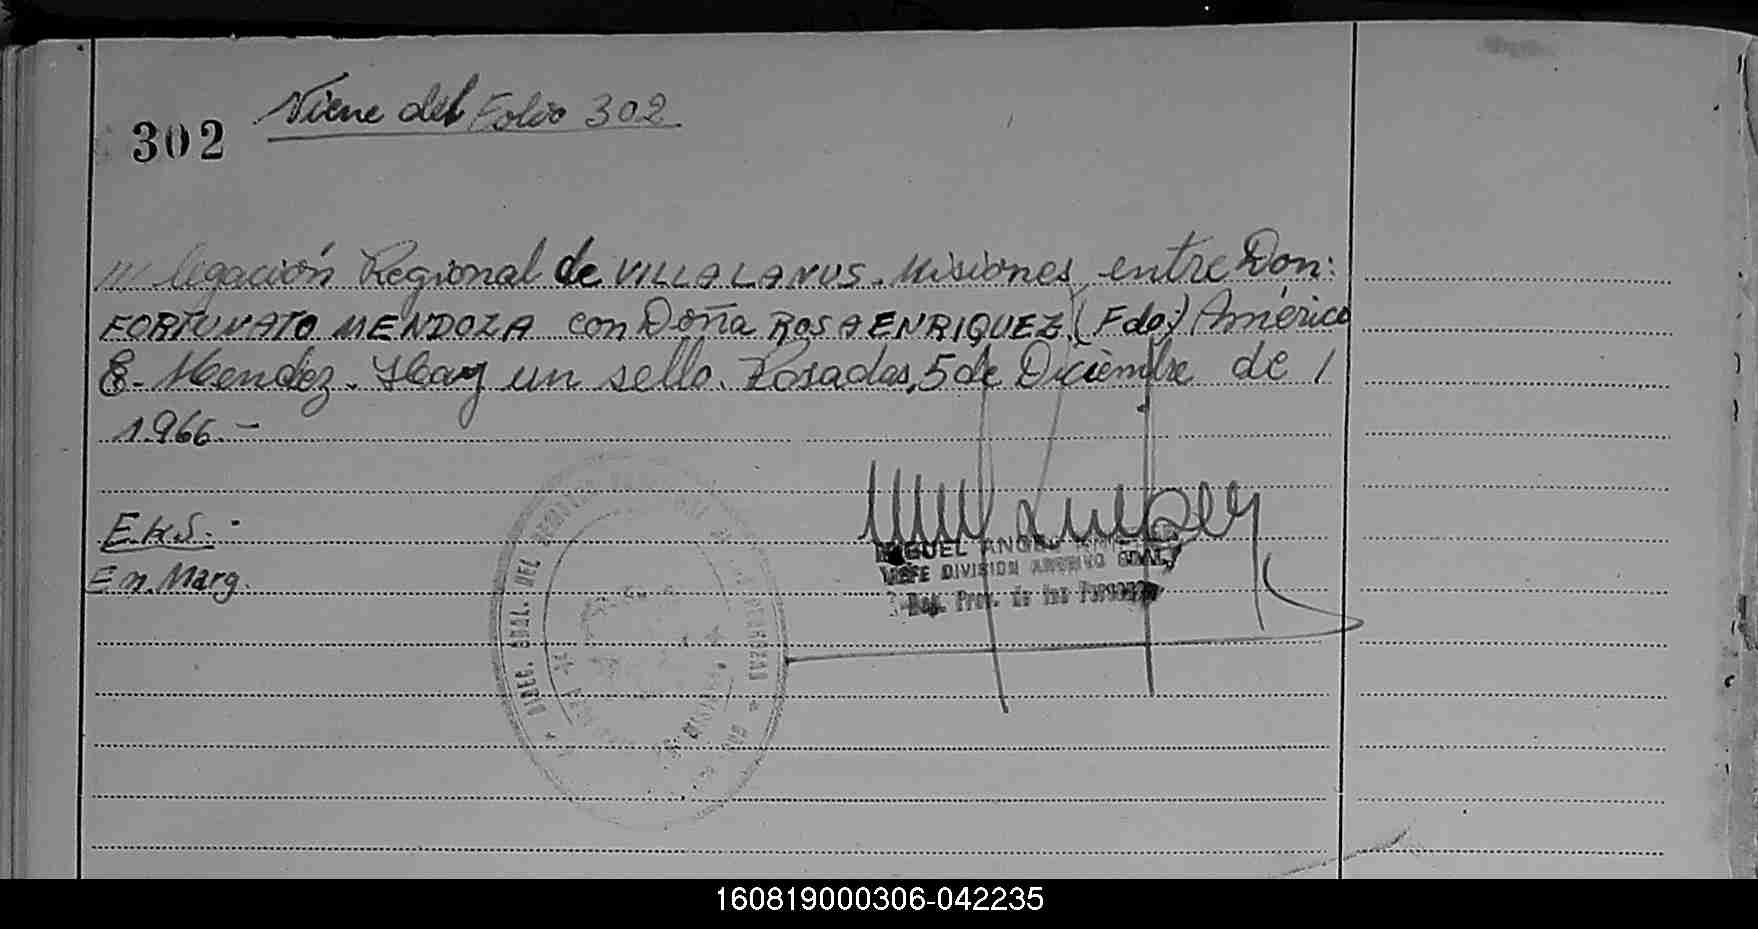 Viene del Folio 302
302
legación Regional de VILLA LANUS. Misiones, entre Don:
FORTUNATO MENDOZA con Doña ROSA ENRIQUEZ. (Fdo) Américo
E. Mendez. Hay un sello. Posadas, 5 de Diciembre de /
1.966.-
MIGUEL ANGEL
JEFE DIVISION ARCHIVO GRAL.
Reg. Prov. de las Personas
En. Marg.
DIREC. GRAL. DEL REGISTRO
160819000306-042235